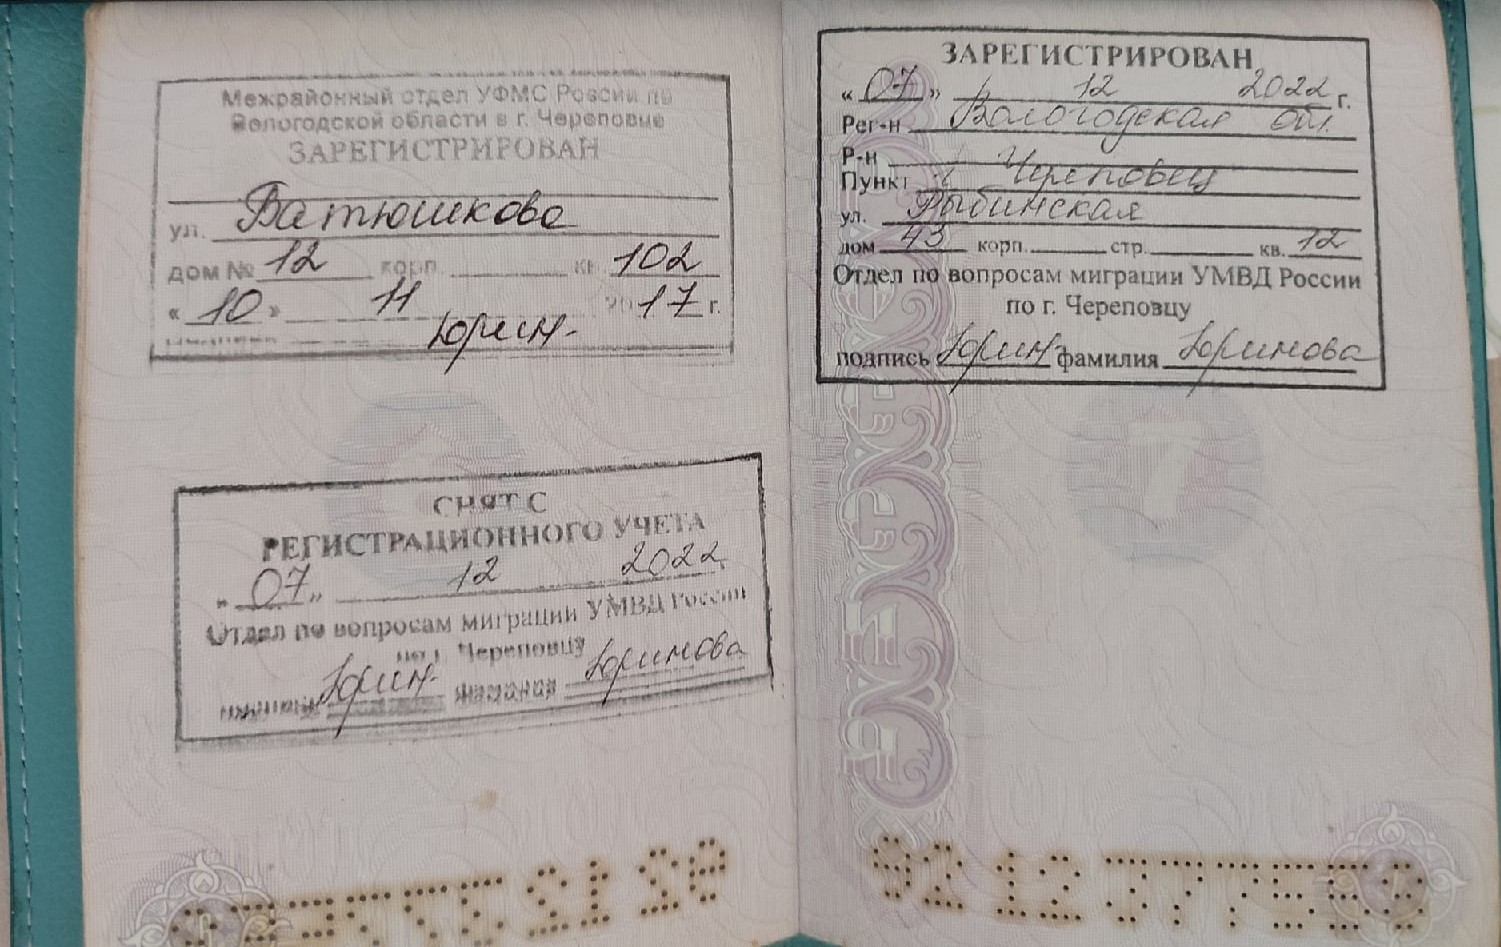 Межрайонный отдел УФМС России по
Вологодской области в г. Череповце
ЗАРЕГИСТРИРОВАН
ул. Батюшкова
дом № 12 корп. кв. 102
« 10 » 11 2017 г.
Юрин-
СНЯТ С
РЕГИСТРАЦИОННОГО УЧЕТА
« 07 » 12 2022 г.
Отдел по вопросам миграции УМВД России
по г. Череповцу
подпись Юрин- фамилия Юринова
ЗАРЕГИСТРИРОВАН
« 07 » 12 2022 г.
Рег-н Вологодская обл.
Р-н
Пункт г. Череповец
ул. Рыбинская
дом 43 корп. стр. кв. 12
Отдел по вопросам миграции УМВД России
по г. Череповцу
подпись Юрин- фамилия Юринова
7